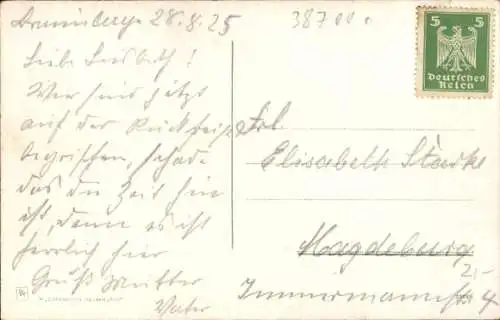 28.8.25
387000
5 5
Deutsches
Reich
Liebe Lisbeth!
Wir sind jetzt
auf der Rückreise
begriffen, schade
das die Zeit hin
ist, denn es ist
herrlich hier
Gruß Mutter
Vater
Frl.
Elisabeth Starke
Magdeburg
2,-
Immermannstr 4